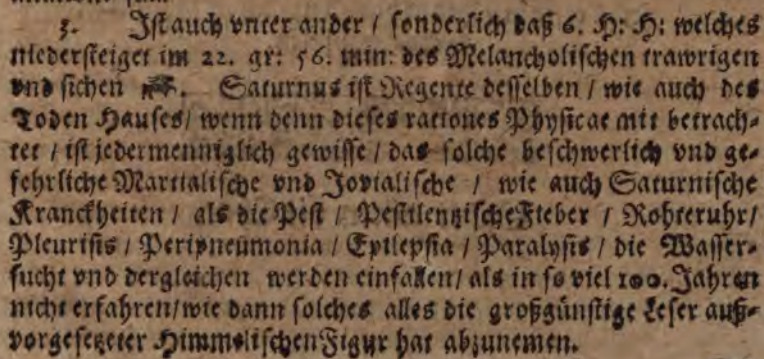 3. Ist auch vnter ander / sonderlich daß 6. H: H: welches
niedersteiget im 22. gr: 56. min: des Melancholischen trawrigen
vnd sichen. Saturnus ist Regente desselben / wie auch des
Toden Hauses / wenn denn dieses rationes Physicae mit betrach-
tet / ist jedermenniglich gewisse / das solche beschwerlich vnd ge-
fehrliche Martialische vnd Jovialische / wie auch Saturnische
Kranckheiten / als die Pest / Pestilentzische Fieber / Rohteruhr /
Pleurisis / Peripneumonia / Epilepsia / Paralysis / die Wasser-
sucht vnd dergleichen werden einfallen / als in so viel 100. Jahren
nicht erfahren / wie dann solches alles die großgünstige Leser auß-
vorgesetzeter Himmelischen Figur hat abzunemen.